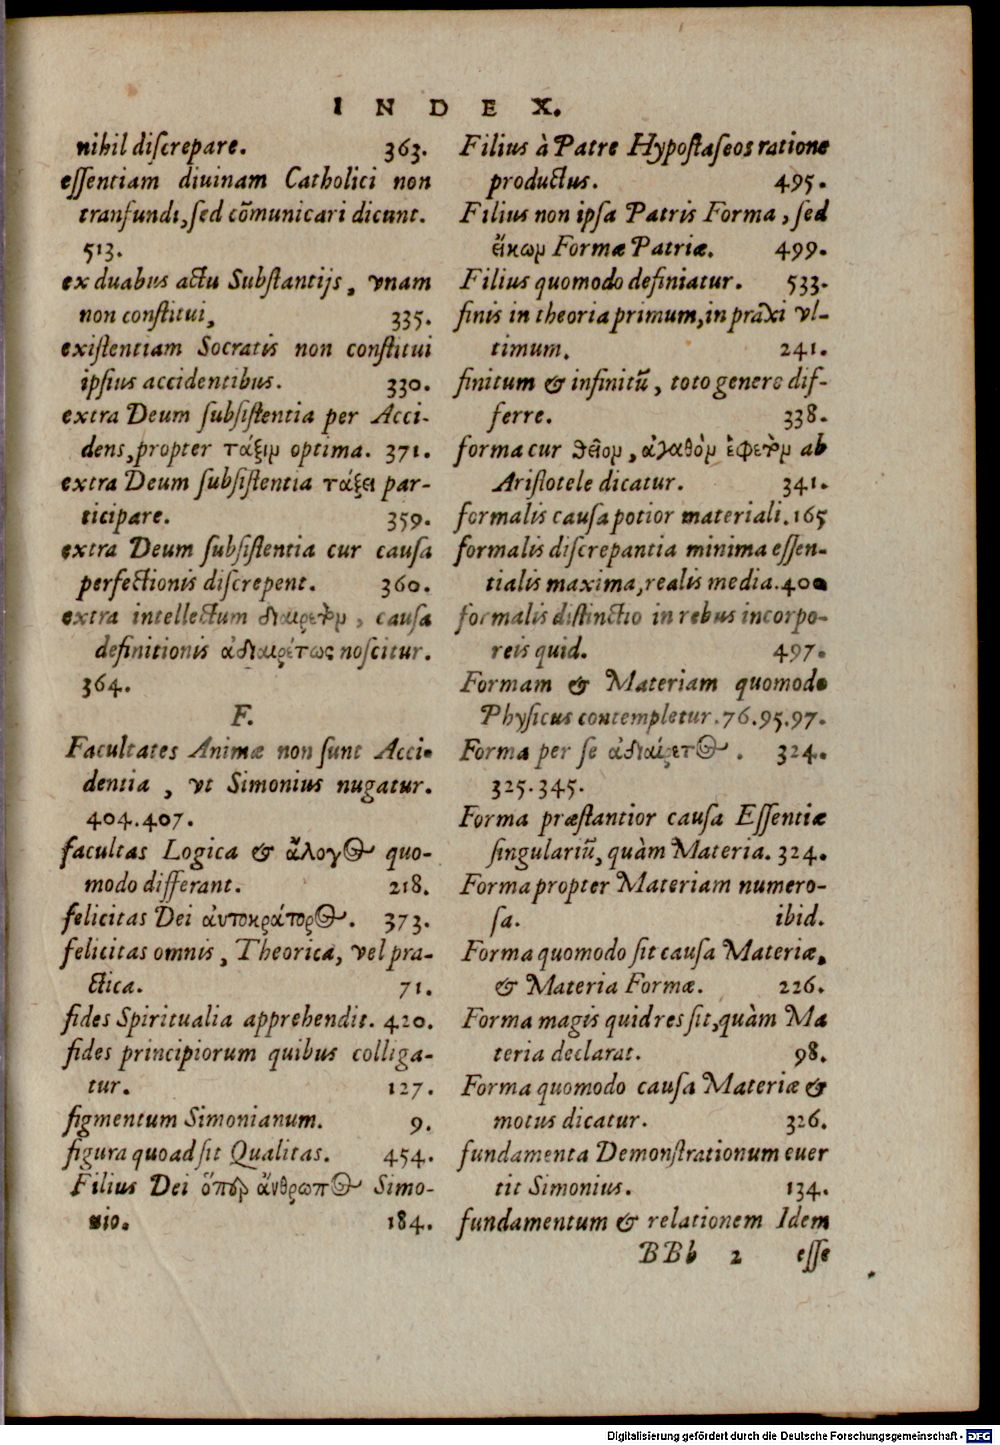 INDEX.
nihil discrepare. 363.
essentiam diuinam Catholici non
transundi, sed cõmunicari dicunt.
513.
ex duabus actu Substantijs, vnam
non constitui, 335.
existentiam Socratis non constitui
ipsius accidentibus. 330.
extra Deum subsistentia per Acci-
dens, propter τάξιμ optima. 371.
extra Deum subsistentia τάξει par-
ticipare. 359.
extra Deum subsistentia cur causa
perfectionis discrepent. 360.
extra intellectum διαιρετὸμ, causa
definitionis ἀδιαιρέτως noscitur.
364.
F.
Facultates Animæ non sunt Acci-
dentia, vt Simonius nugatur.
404.407.
facultas Logica & ἄλογος quo-
modo differant. 218.
felicitas Dei ἀυτοκράτορος. 373.
felicitas omnis, Theorica, vel pra-
ctica. 71.
fides Spiritualia apprehendit. 420.
fides principiorum quibus colliga-
tur. 127.
figmentum Simonianum. 9.
figura quoad sit Qualitas. 454.
Filius Dei ὅπερ ἄνθρωπος Simo-
nio. 184.
Filius à Patre Hypostaseos ratione
productus. 495.
Filius non ipsa Patris Forma, sed
εἴκωμ Formæ Patriæ. 499.
Filius quomodo definiatur. 533.
finis in theoria primum, in praxi vl-
timum. 241.
finitum & infinitũ, toto genere dif-
ferre. 338.
forma cur θεῖομ, ἀγαθὸμ ἐφετὸμ ab
Aristotele dicatur. 341.
formalis causa potior materiali. 165
formalis discrepantia minima essen-
tialis maxima, realis media. 400
formalis distinctio in rebus incorpo-
reis quid. 497.
Formam & Materiam quomodo
Physicus contempletur. 76.95.97.
Forma per se ἀδιαίρετος. 324.
325.345.
Forma præstantior causa Essentiæ
singulariũ, quàm Materia. 324.
Forma propter Materiam numero-
sa. ibid.
Forma quomodo sit causa Materiæ,
& Materia Formæ. 226.
Forma magis quid res sit, quàm Ma
teria declarat. 98.
Forma quomodo causa Materiæ &
motus dicatur. 326.
fundamenta Demonstrationum euer
tit Simonius. 134.
fundamentum & relationem Idem
BBb 2 esse
Digitalisierung gefördert durch die Deutsche Forschungsgemeinschaft - DFG